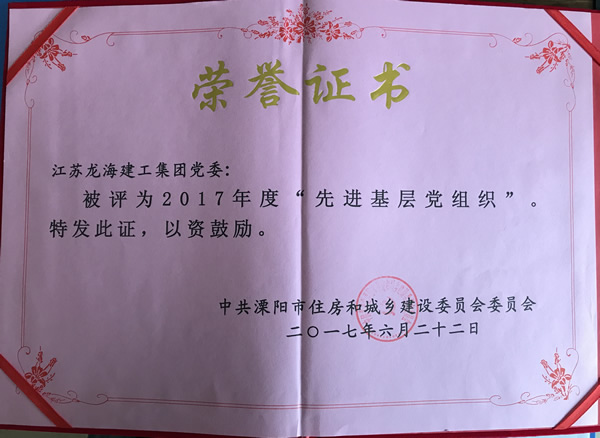 荣誉证书
江苏龙海建工集团党委：
被评为2017年度“先进基层党组织”。
特发此证，以资鼓励。
中共溧阳市住房和城乡建设委员会委员会
二〇一七年六月二十二日